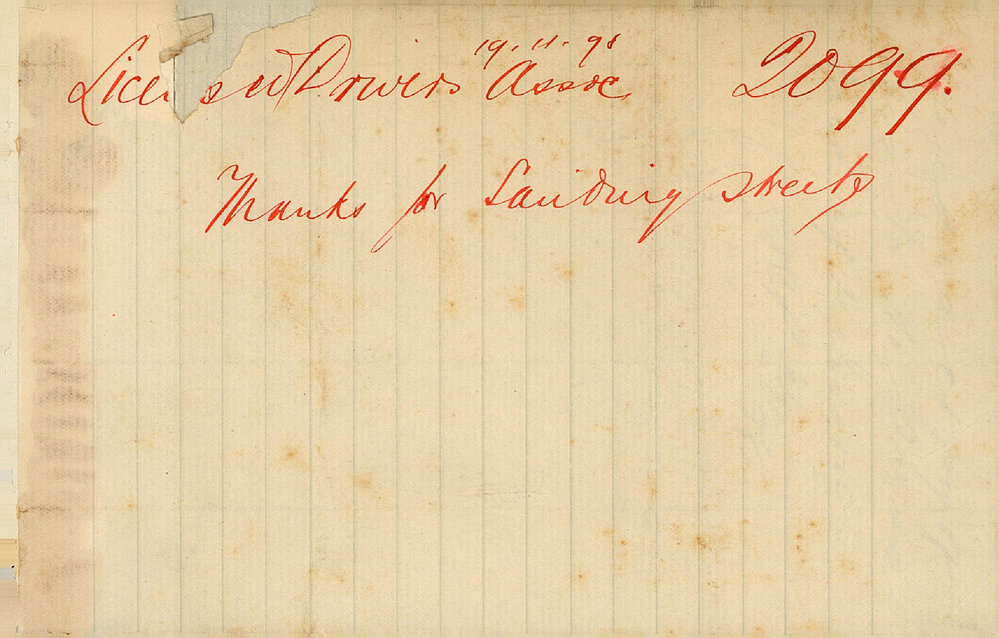 19.11.98
Licensed Drivers Assoc 2099.
Thanks for Sanding streets